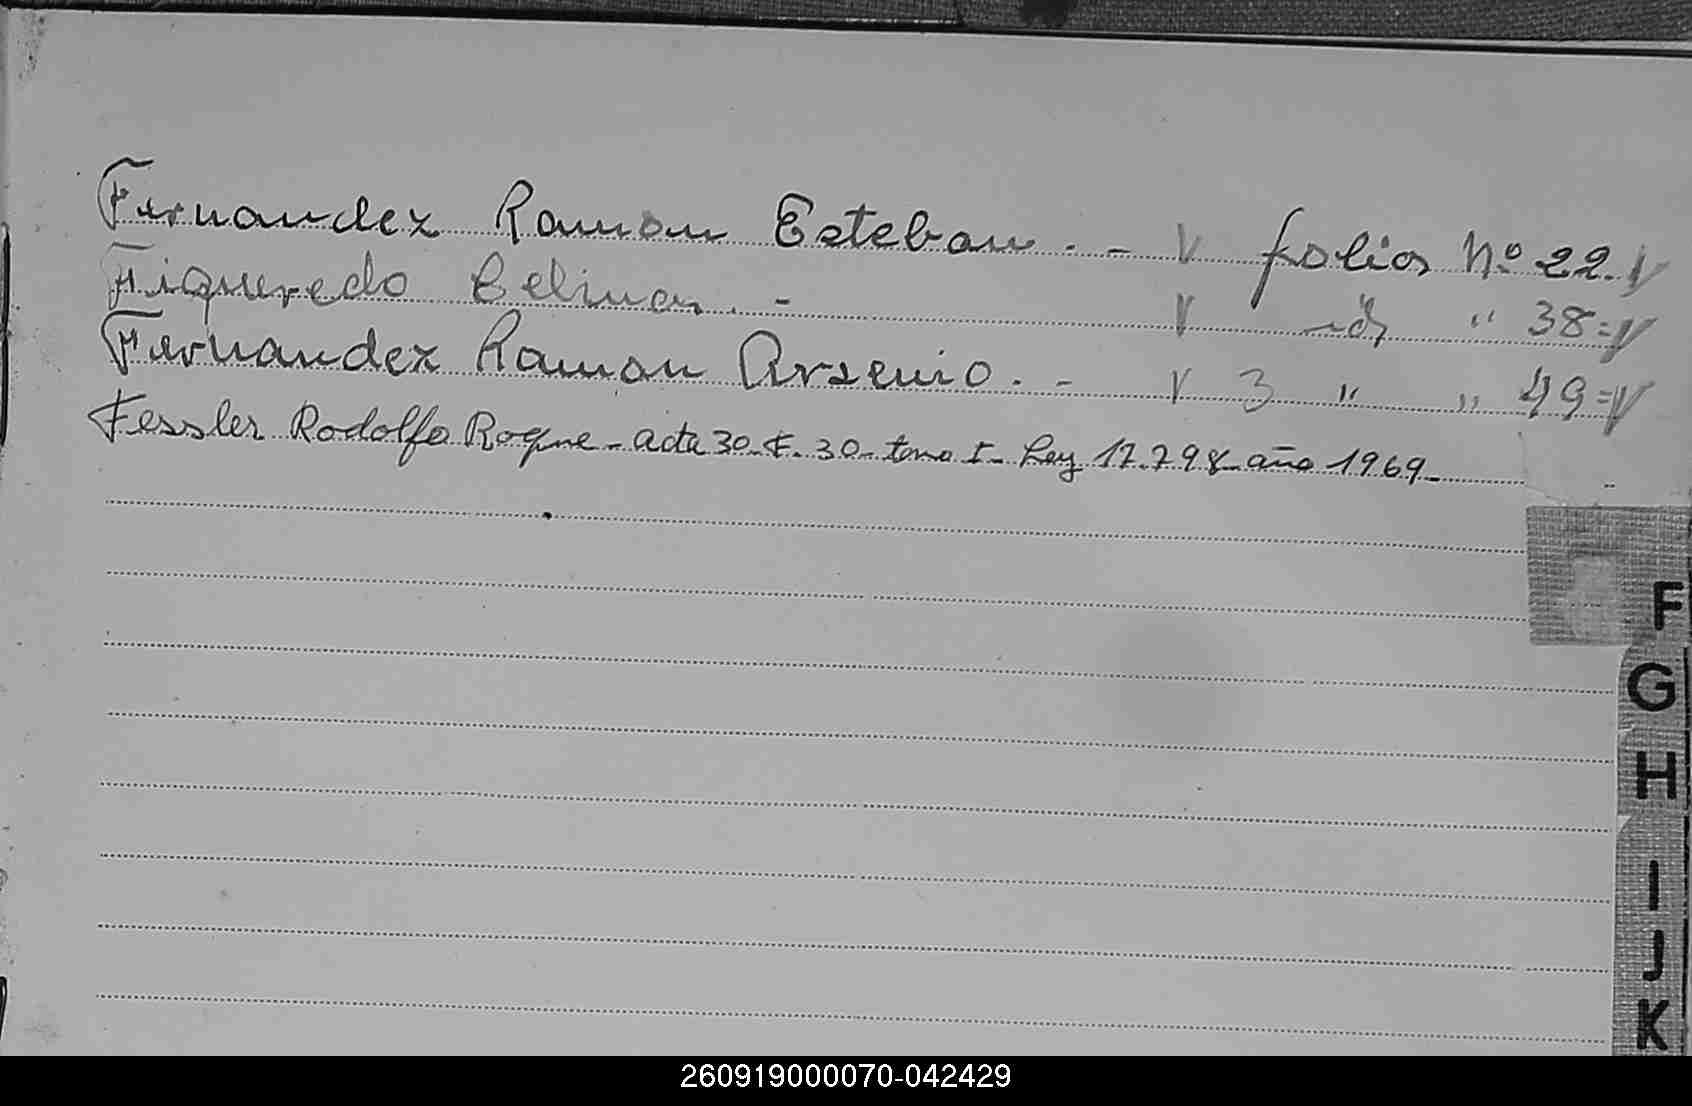 Fernandez Ramon Esteban . - V folios Nº 22. V
Figueredo Celina . - V id " 38 = V
Fernandez Ramon Arsenio . - V 3 " " 49 = V
Fessler Rodolfo Roque - acta 30 - F. 30 - tomo I - Ley 17.798 - año 1969 -
F
G
H
I
J
K
260919000070-042429